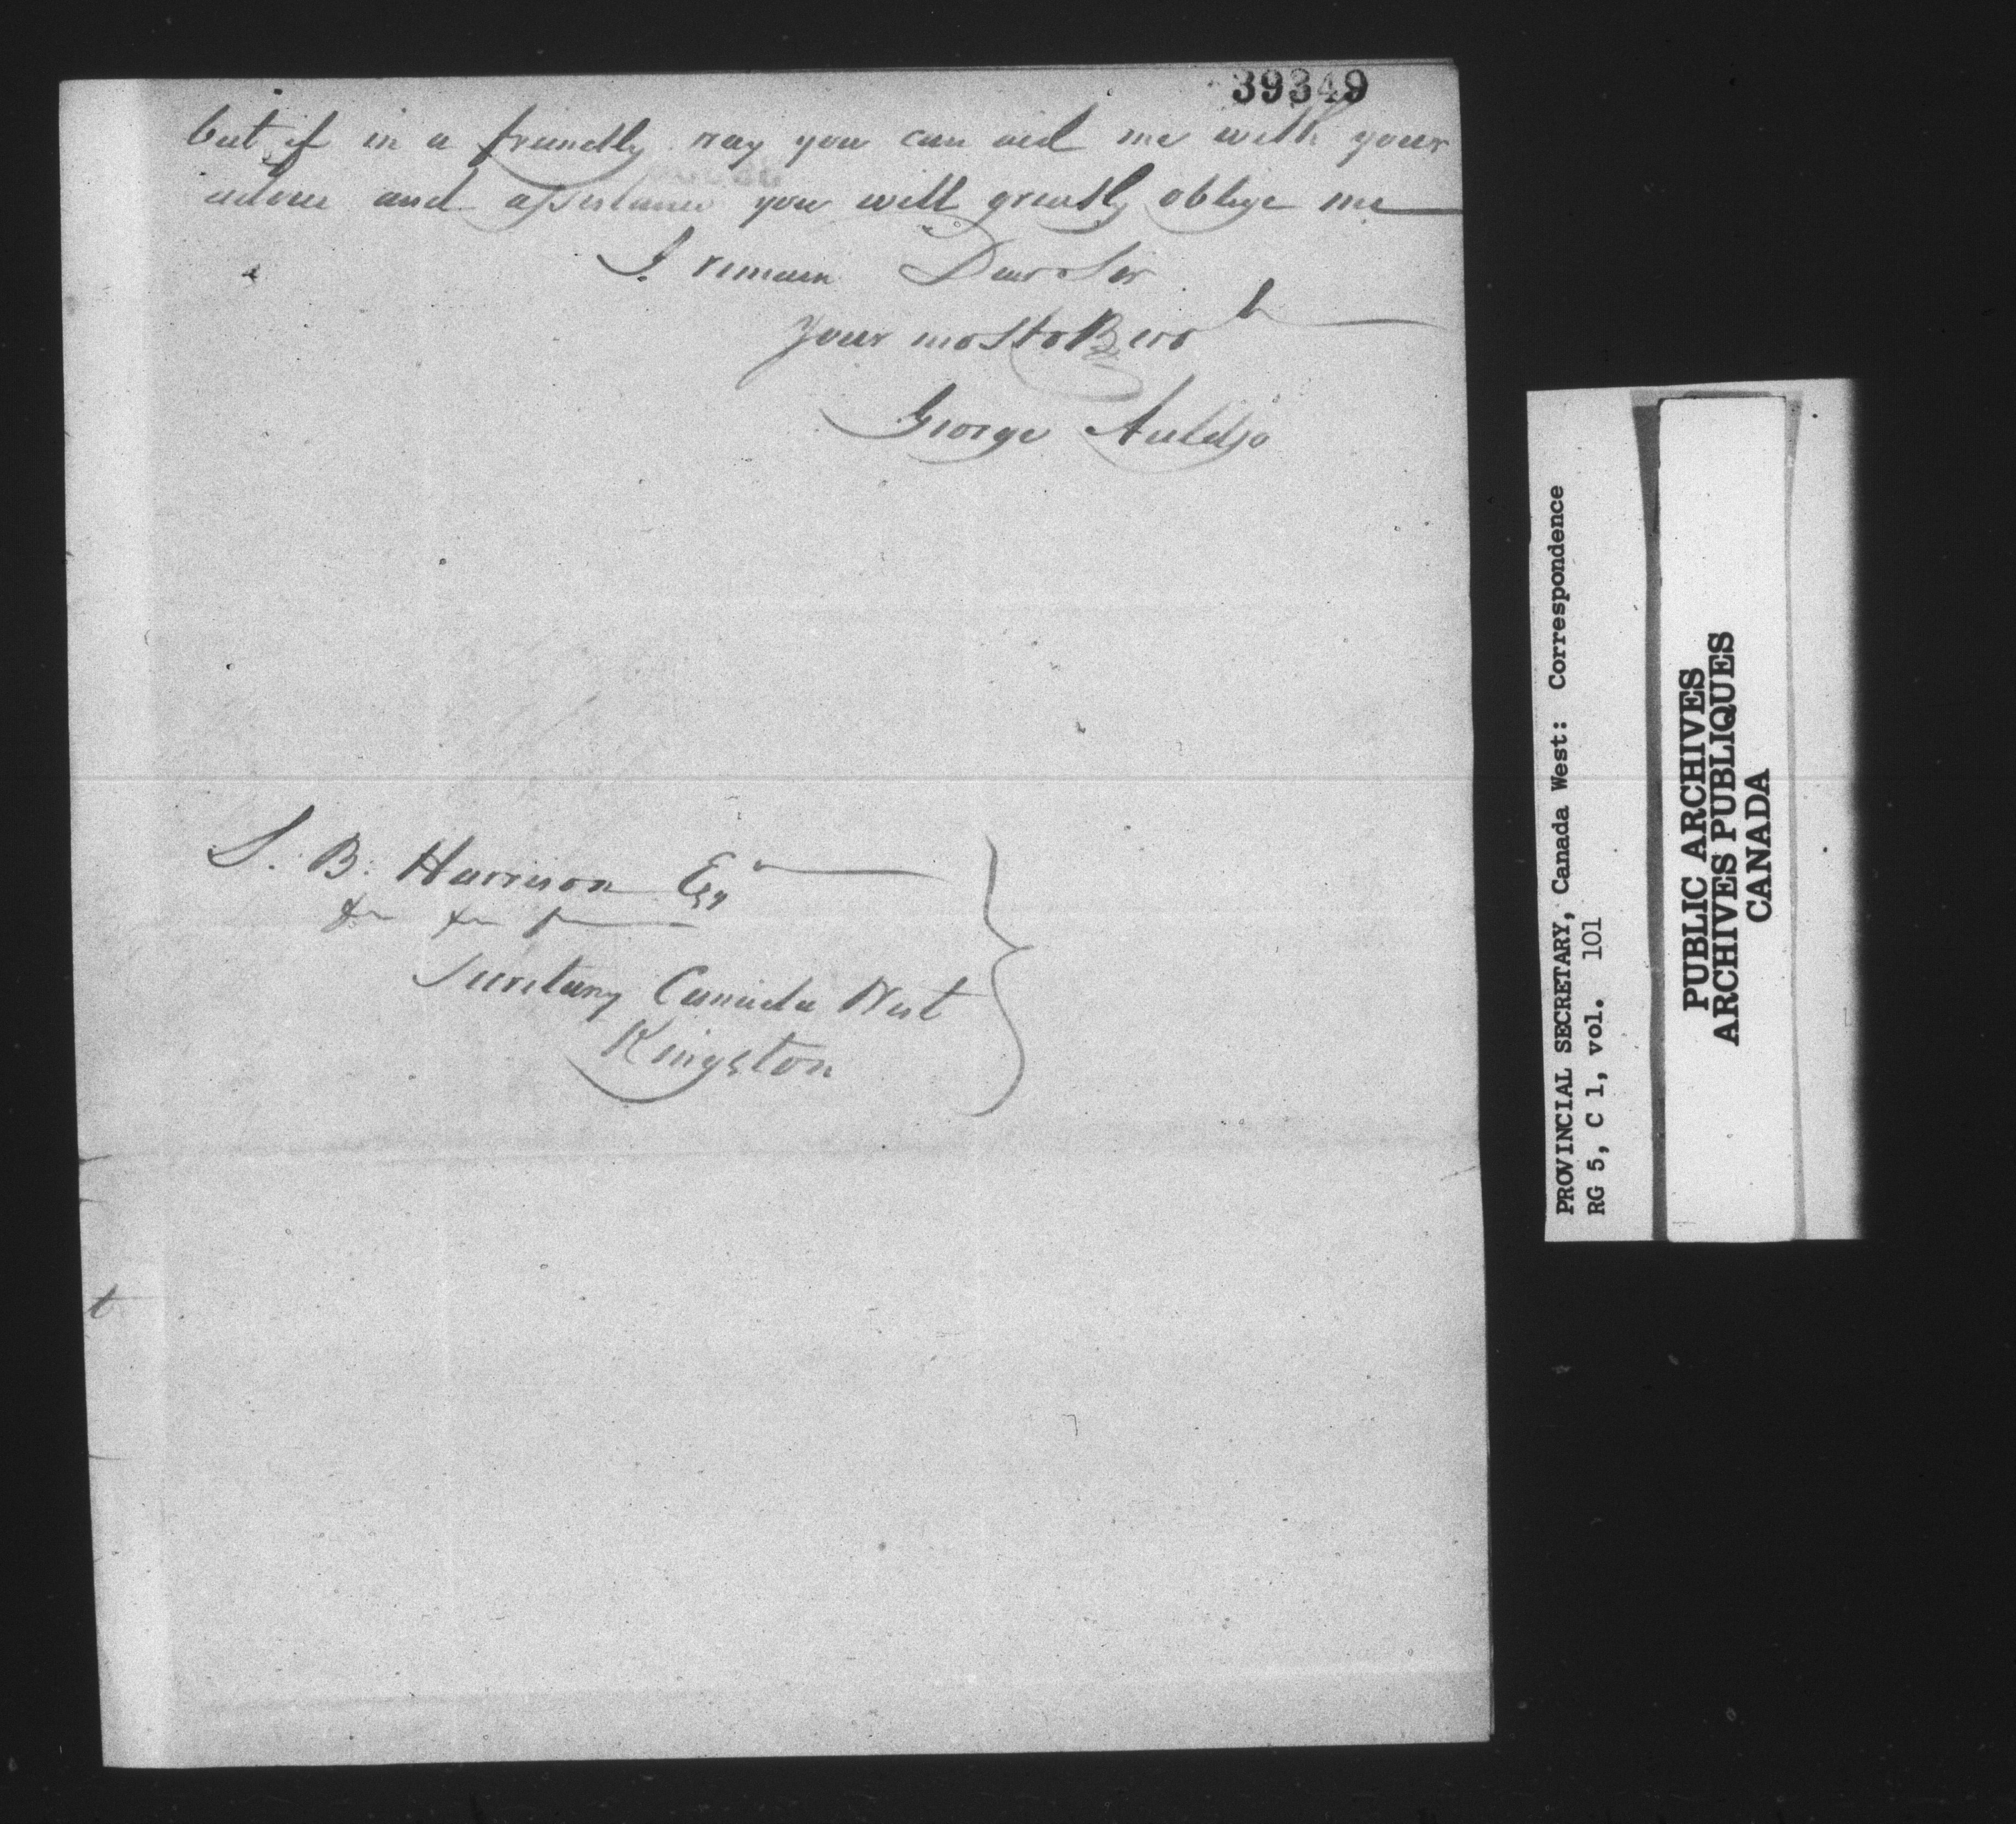 39349
but if in a friendly way you can aid me with your
advice and assistance you will greatly oblige me
I remain Dear Sir
Your most ob
George Auldjo
S. B. Harrison Esqr
&c &c &c
Secretary Canada West
Kingston
PROVINCIAL SECRETARY, Canada West: Correspondence
RG 5, C 1, vol. 101
PUBLIC ARCHIVES
ARCHIVES PUBLIQUES
CANADA